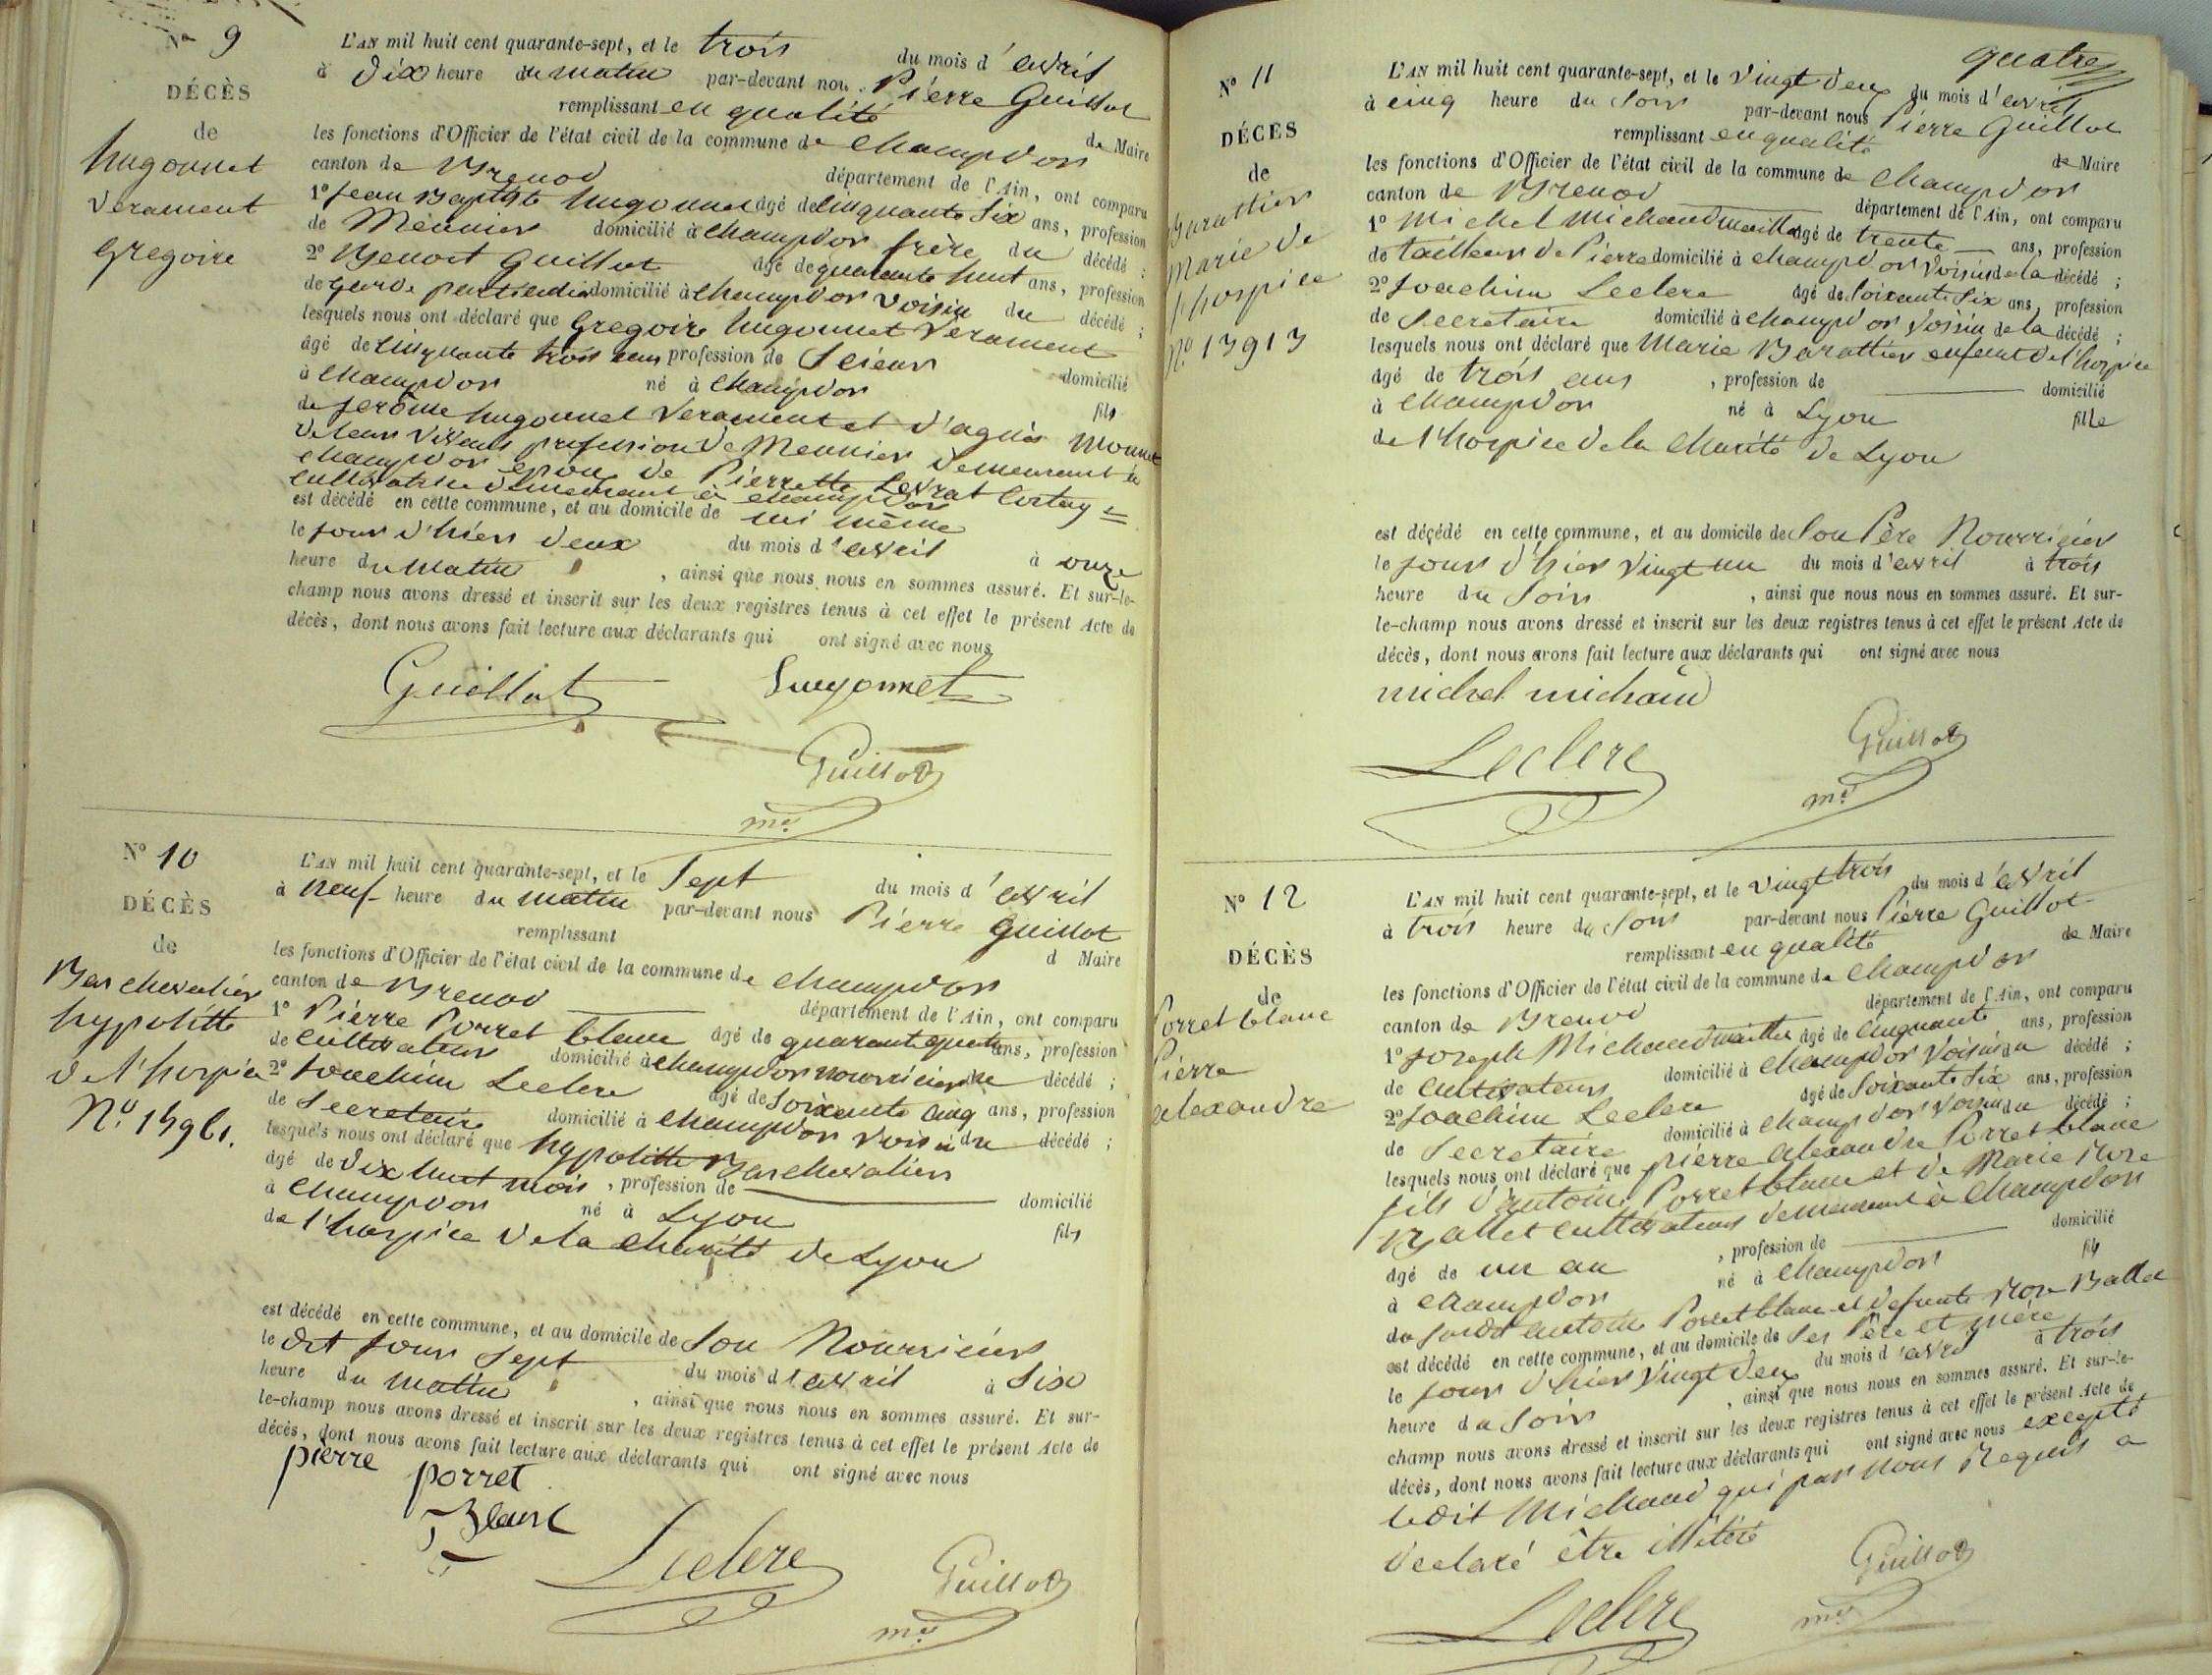 N° 9
DÉCÈS
de
hugonnet
verament
gregoire
L'AN mil huit cent quarante-sept, et le trois du mois d'avril
à dix heure du matin par-devant nou Pierre Guillot
remplissant en qualité de Maire
les fonctions d'Officier de l'état civil de la commune de champdor
canton de Brenod département de l'Ain, ont comparu
1° jean Baptiste hugonnet âgé de cinquante six ans, profession
de Meunier domicilié à champdor frère du décédé ;
2° Benoit Guillot âgé de quarante huit ans, profession
de garde particulier domicilié à champdor voisin du décédé ;
lesquels nous ont déclaré que gregoire hugonnet verament
âgé de cinquante trois ans profession de scieur domicilié
à champdor né à champdor fils
de jerôme hugonnet verament et d'agnès Monnet
de leurs vivant profession de Meunier demeurant à
champdor epoux de Pierrette Levrat
cultivatrice demeurant à champdor
est décédé en cette commune, et au domicile de lui même
le jour d'hier deux du mois d'avril à onze
heure du matin , ainsi que nous nous en sommes assuré. Et sur-le-
champ nous avons dressé et inscrit sur les deux registres tenus à cet effet le présent Acte de
décès, dont nous avons fait lecture aux déclarants qui ont signé avec nous
Guillot hugonnet
Guillot
mre
N° 10
DÉCÈS
de
Bar chevalier
hypolitte
de l'hospice
N° 13961.
L'AN mil huit cent quarante-sept, et le sept du mois d'avril
à neuf heure du matin par-devant nous Pierre Guillot
remplissant d Maire
les fonctions d'Officier de l'état civil de la commune de champdor
canton de Brenod département de l'Ain, ont comparu
1° Pierre Porret blanc âgé de quarante quatre ans, profession
de cultivateur domicilié à champdor nourricier du décédé ;
2° joachim Leclere âgé de soixante cinq ans, profession
de secretaire domicilié à champdor voisin du décédé ;
lesquels nous ont déclaré que hypolitte Bar chevalier
âgé de dix huit mois , profession de domicilié
à champdor né à Lyon fils
de l'hospice de la charité de Lyon
est décédé en cette commune, et au domicile de son Nourricier
le dit jour sept du mois d'avril à six
heure du matin , ainsi que nous nous en sommes assuré. Et sur-
le-champ nous avons dressé et inscrit sur les deux registres tenus à cet effet le présent Acte de
décès, dont nous avons fait lecture aux déclarants qui ont signé avec nous
pierre porret
Blanc
Leclere Guillot
mre
quatre
N° 11
DÉCÈS
de
Barattier
Marie de
l'hospice
N° 13913
L'AN mil huit cent quarante-sept, et le vingt deux du mois d'avril
à cinq heure du soir par-devant nous Pierre Guillot
remplissant en qualité de Maire
les fonctions d'Officier de l'état civil de la commune de champdor
canton de Brenod département de l'Ain, ont comparu
1° Michel Michaud maillet âgé de trente ans, profession
de tailleur de Pierre domicilié à champdor voisin de la décédé ;
2° joachim Leclere âgé de soixante six ans, profession
de secretaire domicilié à champdor voisin de la décédé ;
lesquels nous ont déclaré que Marie Barattier enfant de l'hospice
âgé de trois ans , profession de domicilié
à champdor né à Lyon fille
de l'hospice de la charité de Lyon
est décédé en cette commune, et au domicile de son Père Nourricier
le jour d'hier vingt un du mois d'avril à trois
heure du soir , ainsi que nous nous en sommes assuré. Et sur-
le-champ nous avons dressé et inscrit sur les deux registres tenus à cet effet le présent Acte de
décès, dont nous avons fait lecture aux déclarants qui ont signé avec nous
michel michaud
Leclere Guillot
mre
N° 12
DÉCÈS
de
Porret blanc
Pierre
alexandre
L'AN mil huit cent quarante-sept, et le vingt trois du mois d'avril
à trois heure du soir par-devant nous Pierre Guillot
remplissant en qualité de Maire
les fonctions d'Officier de l'état civil de la commune de champdor
canton de Brenod département de l'Ain, ont comparu
1° joseph Michaud maillet âgé de cinquante ans, profession
de cultivateur domicilié à champdor voisin du décédé ;
2° joachim Leclere âgé de soixante six ans, profession
de secretaire domicilié à champdor voisin du décédé ;
lesquels nous ont déclaré que pierre alexandre Porret blanc
fils d'antoine Porret blanc et de Marie
Ballet cultivateurs demeurant à champdor
âgé de un an , profession de domicilié
à champdor né à champdor fils
du antoine Porret blanc et defunte Ballet
est décédé en cette commune, et au domicile de ses Père et mère
le jour d'hier vingt deux du mois d'avril à trois
heure du soir , ainsi que nous nous en sommes assuré. Et sur-le-
champ nous avons dressé et inscrit sur les deux registres tenus à cet effet le présent Acte de
décès, dont nous avons fait lecture aux déclarants qui ont signé avec nous excepté
ledit Michaud qui par nous Requis a
declaré être illiteré
Leclere Guillot
mre